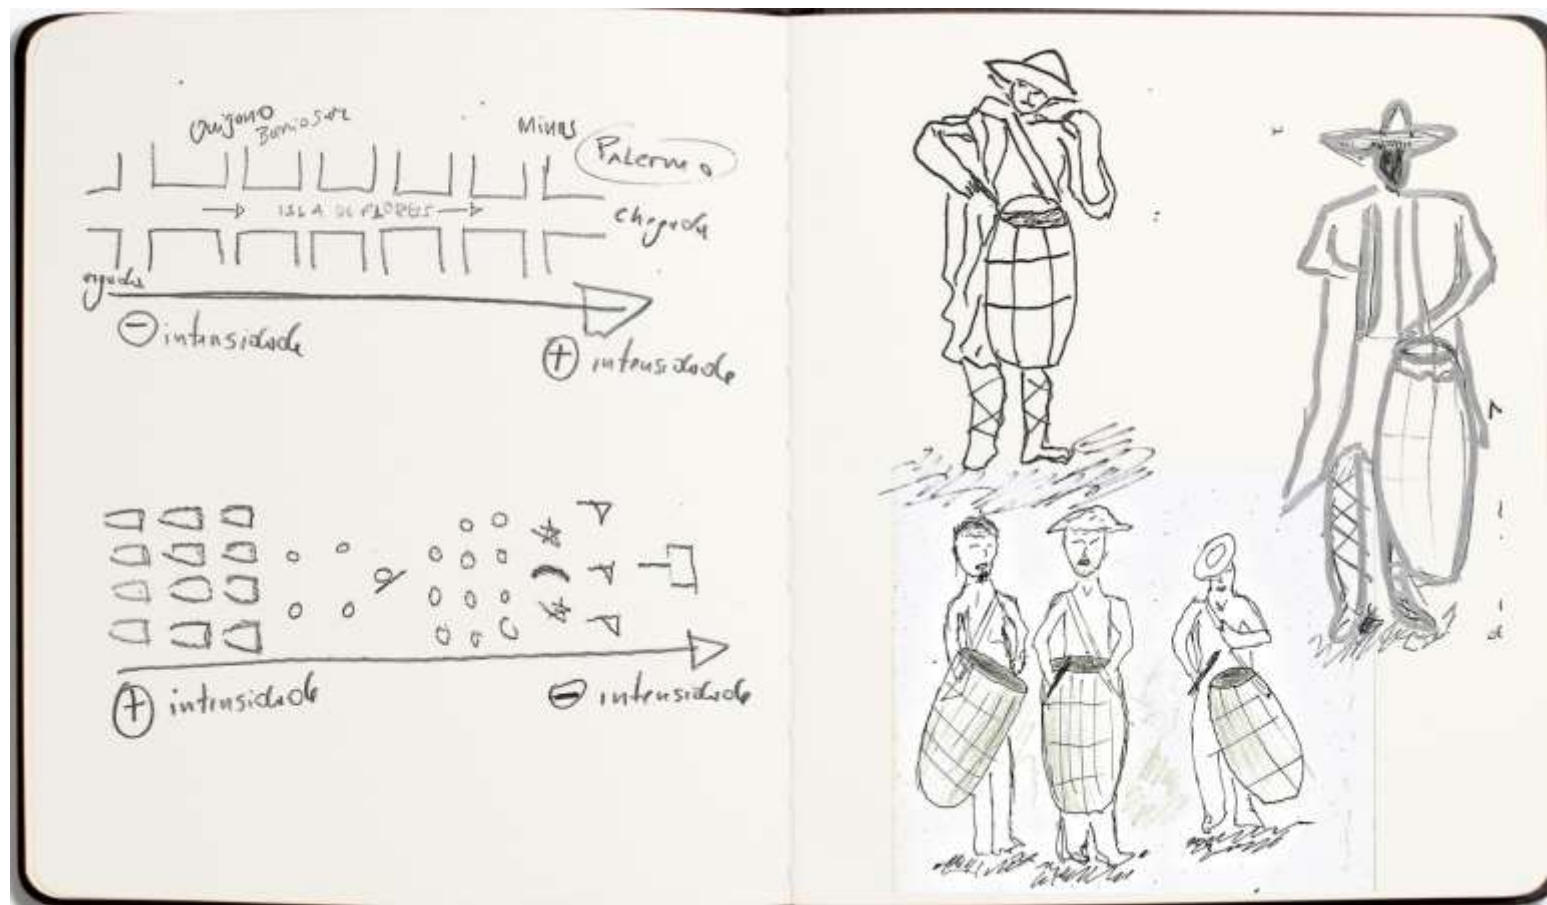 Quijano
Barrio Sur
Minas
Palermo
ISLA DE FLORES
chegada
− intensidade
+ intensidade
+ intensidade
− intensidade